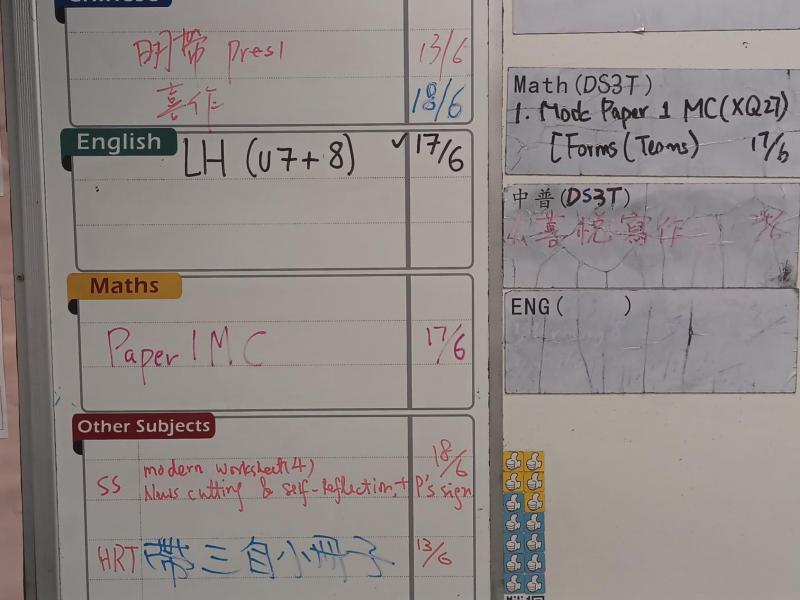 Chinese
明帶 Pres1 13/6
喜作 18/6
English
LH (U7+8) ✓17/6
Maths
Paper 1 MC 17/6
Other Subjects
modern worksheet(4) 18/6
SS News cutting & self-Reflection, + P's sign
HRT 帶三自小冊子 13/6
Math(DS3T)
1. Mock Paper 1 MC(XQ27)
[Forms (Teams) 17/6
中普(DS3T)
喜悅寫作
ENG( )